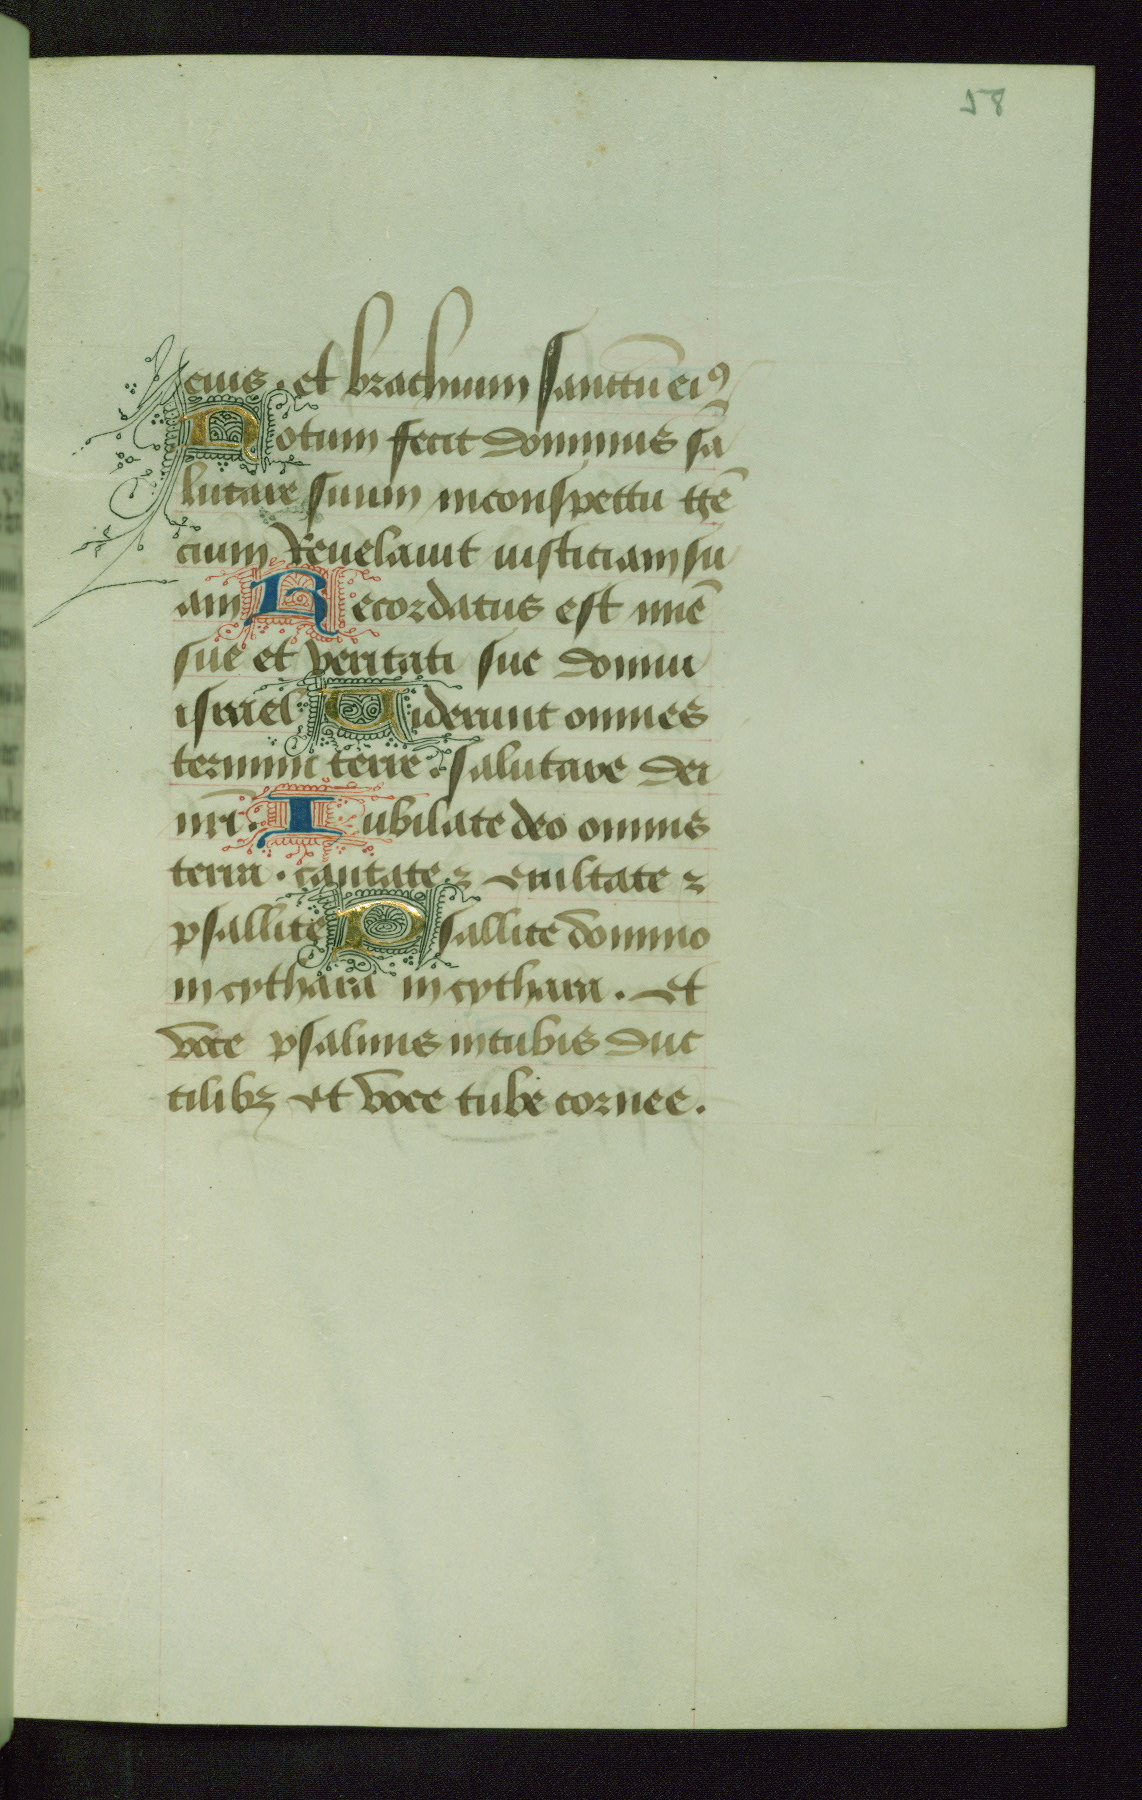 58
eius · et brachium sanctū eiꝰ
Notum fecit dominus sa
lutare suum in conspectu gē
cium Reuelauit iusticiam su
am Recordatus est mīē
sue et veritati sue domui
israel Uiderunt omnes
termini terre . salutare dei
nr̄i . Iubilate deo omnis
terra · cantate ⁊ exultate ⁊
psallite Psallite domino
in cythara in cythara . et
voce psalmis in tubis duc
tilibꝫ et voce tube cornee .